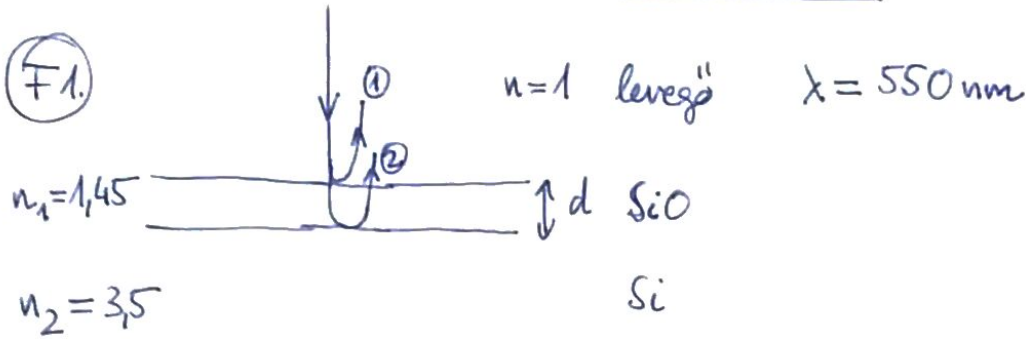 F1.
① n=1 levegő λ = 550 nm
②
n₁=1,45 d SiO
n₂=3,5 Si